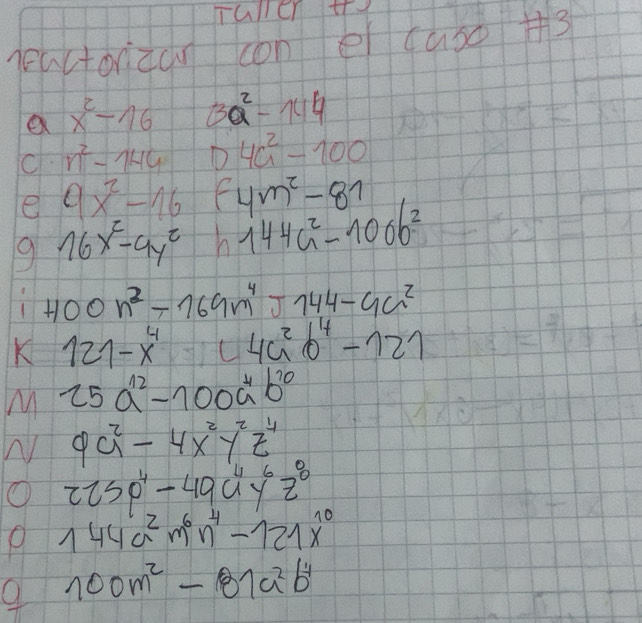 Taller #3
Factorizar con el caso #3
a x²-16 B a²-144
C n²-144 D 4a²-100
e 9x²-16 F 4m²-81
g 16x²-4y² h 144a²-100b²
i 400n²-169m⁴ J 144-9a²
K 121-x⁴ L 4a²b⁴-121
M 25a¹²-100a⁴b¹⁰
N 9a²-4x²y²z⁴
O 225p⁴-49a⁴y⁶z⁸
P 144a²m⁶n⁴-121x¹⁰
q 100m²-81a²b⁴